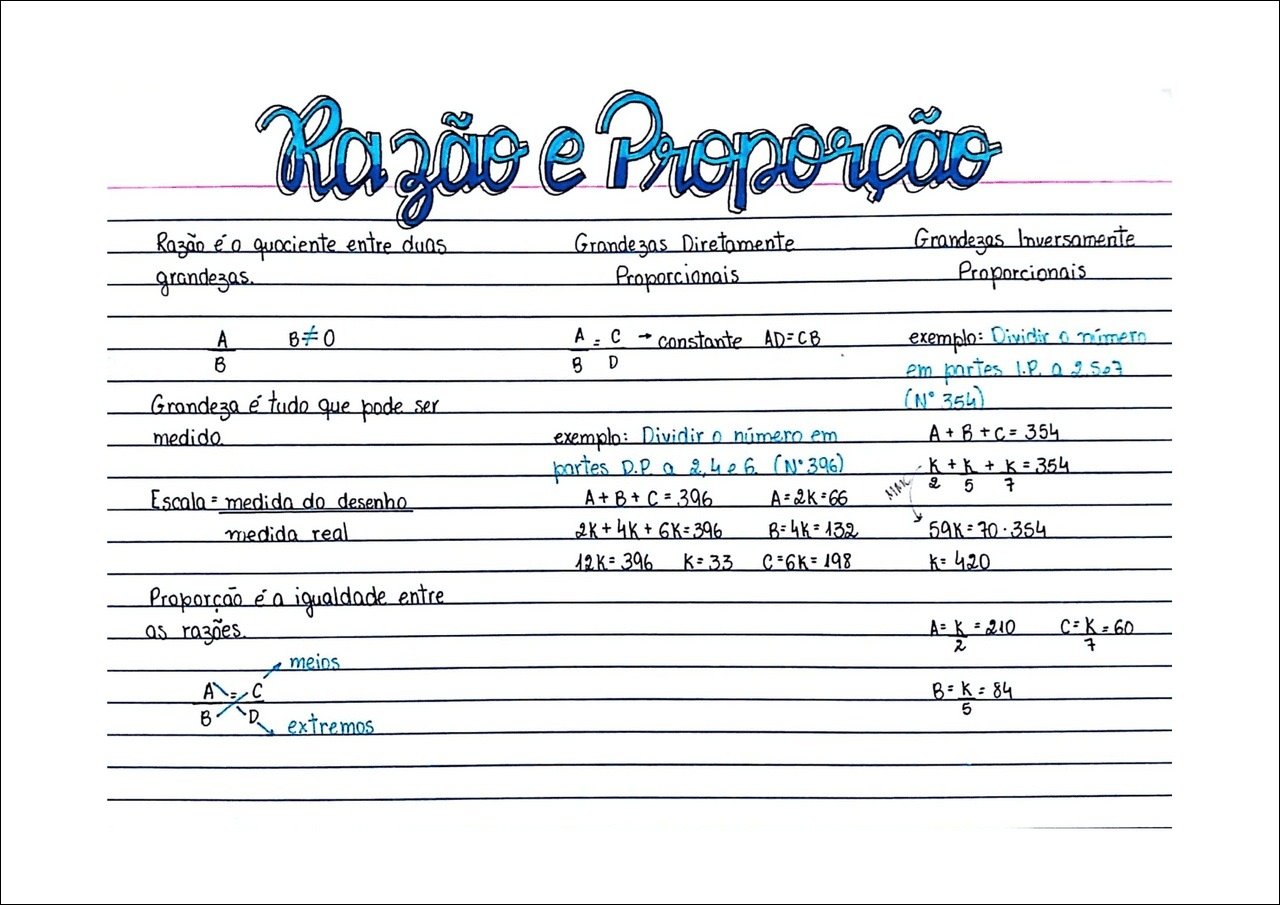 Razão e Proporção
Razão é o quociente entre duas
grandezas.
A/B B≠0
Grandeza é tudo que pode ser
medido.
Escala = medida do desenho
medida real
Proporção é a igualdade entre
as razões.
meios
A/B = C/D
extremos
Grandezas Diretamente
Proporcionais
A/B = C/D → constante AD=CB
exemplo: Dividir o número em
partes D.P. a 2, 4 e 6. (N° 396)
A+B+C=396 A=2K=66
2K+4K+6K=396 B=4K=132
12K=396 K=33 C=6K=198
Grandezas Inversamente
Proporcionais
exemplo: Dividir o número
em partes I.P. a 2,5 e 7
(N° 354)
A+B+C=354
K/2 + K/5 + K/7 = 354
MMC
59K=70·354
K=420
A=K/2=210 C=K/7=60
B=K/5=84